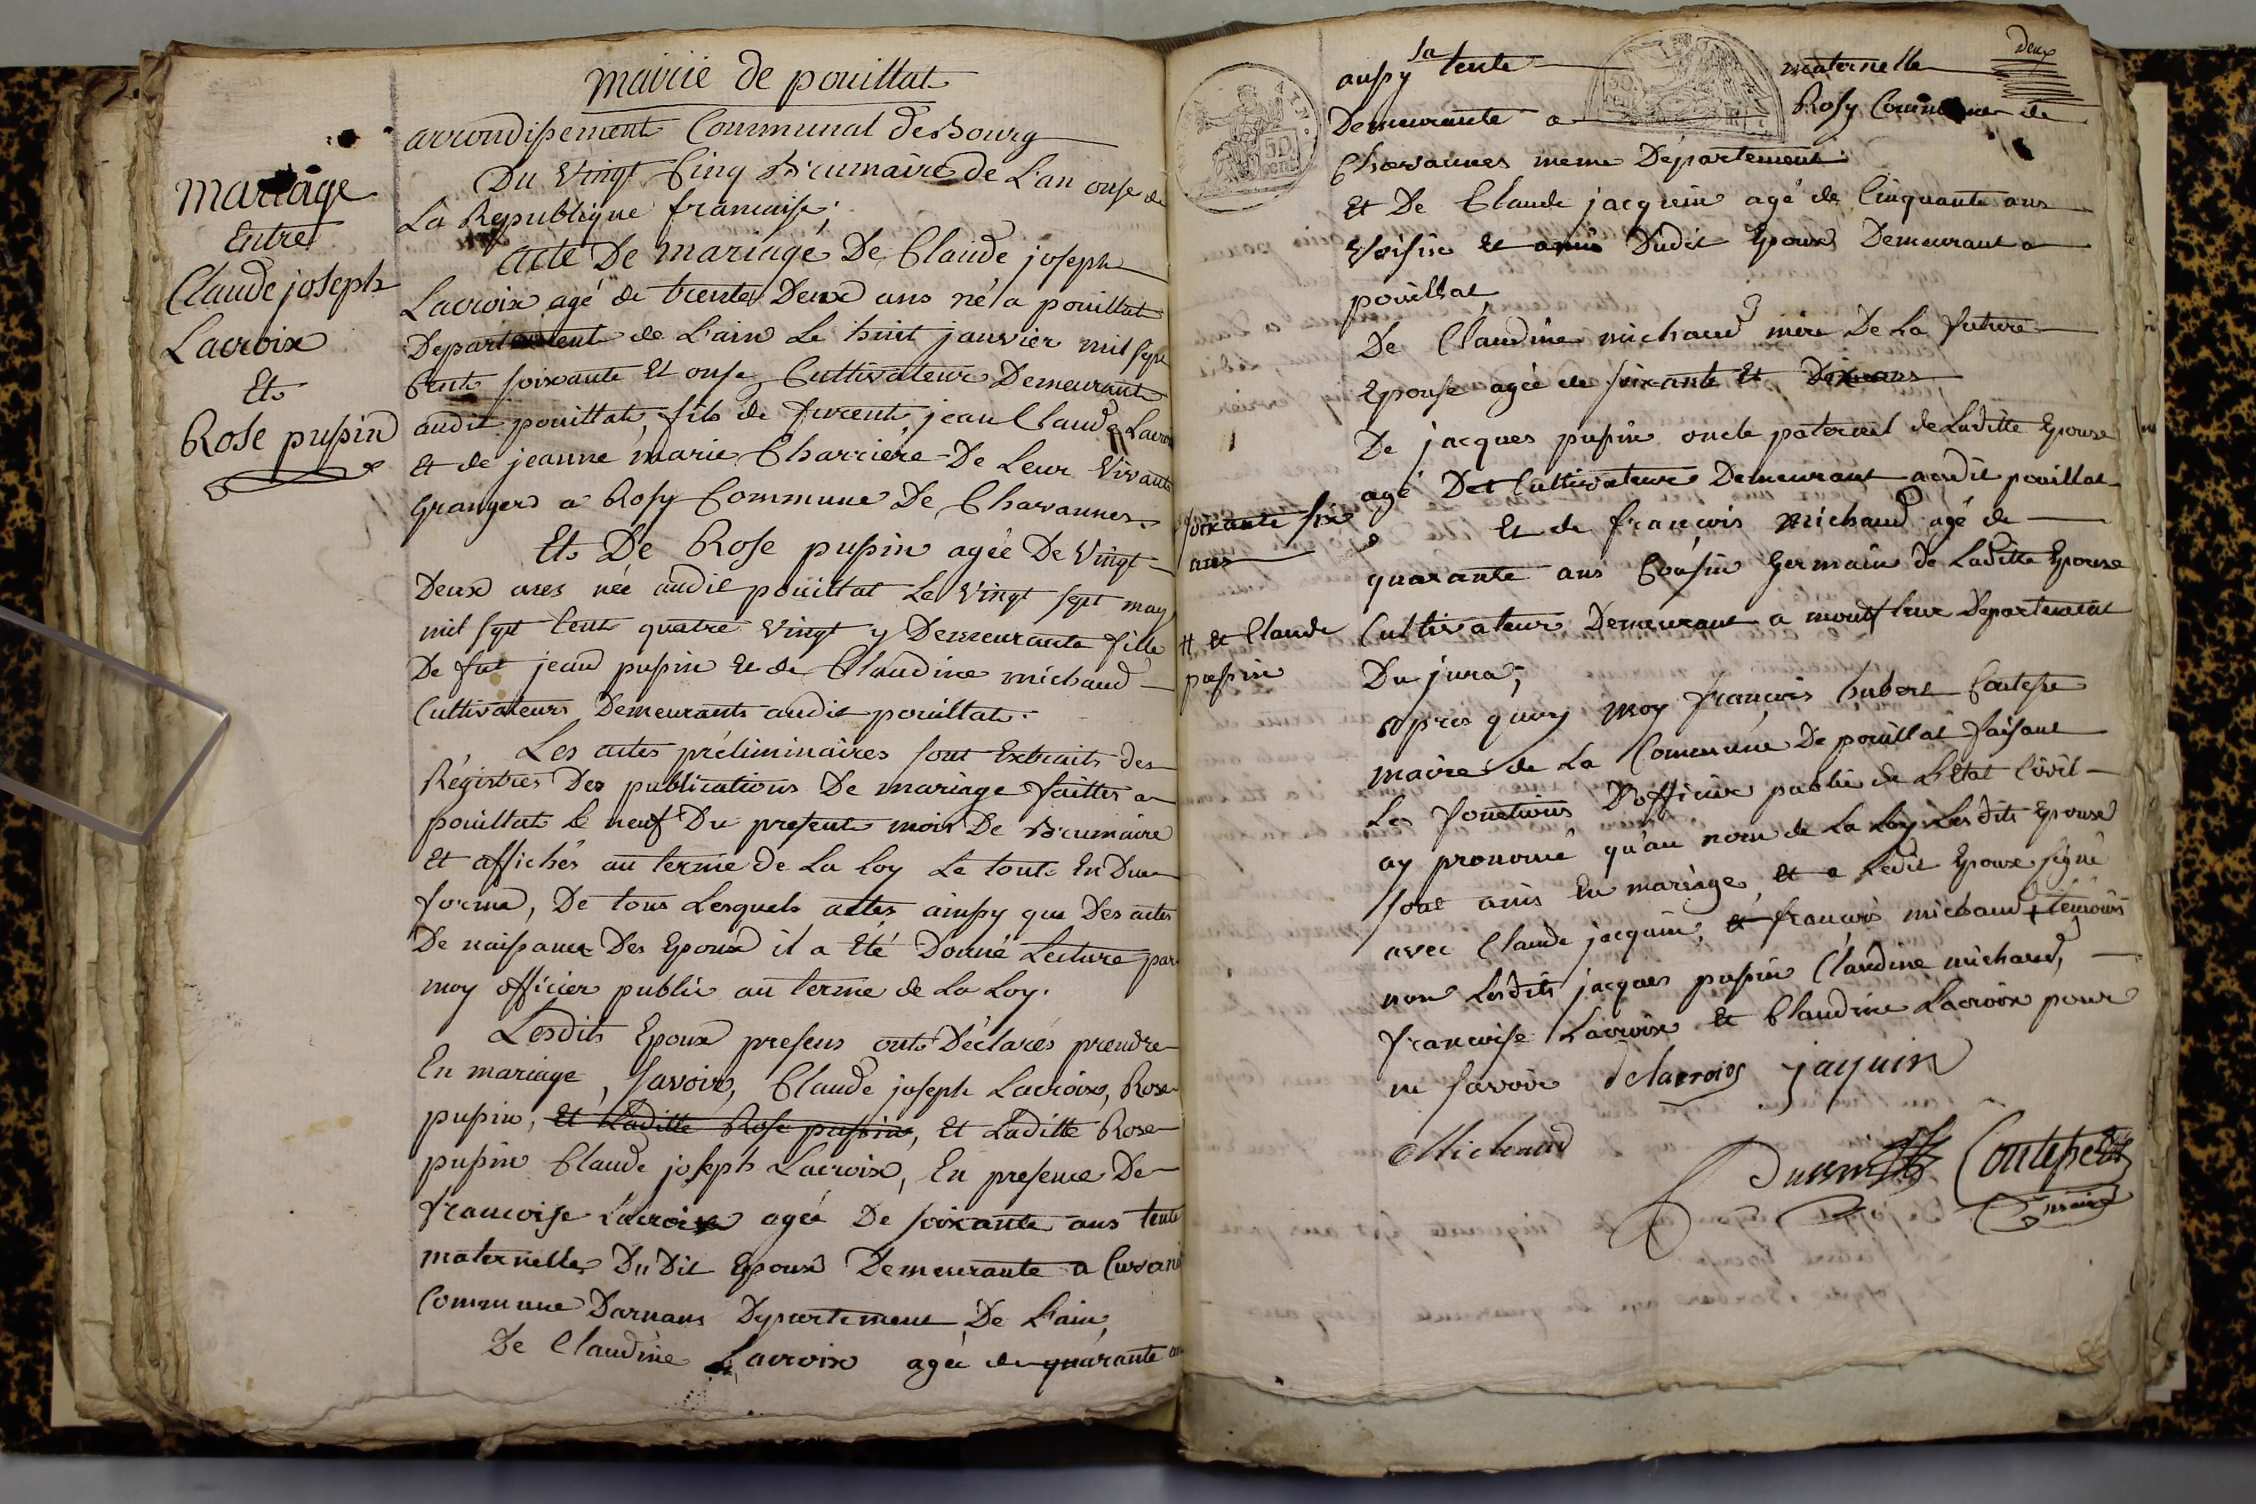 mairie de pouillat
arrondissement Communal de Bourg
Du Vingt Cinq Brumaire de L'an onse de
La Republique francaise;
mariage
Entre
Claude joseph
Lacroix
Et
Rose pupin
acte De mariage De Claude joseph
Lacroix agé de trente Deux ans né a pouillat
Departement de L'ain Le huit janvier mil sept
Cent soixante Et onse Cultivateur Demeurant
audit pouillat, fils de furent, jean Claude Lacroix
et de jeanne marie Charriere De Leur Vivant
Grangers a Rosy Commune De Chavannes
Et De Rose pupin agée De Vingt
Deux ans née audit pouillat Le Vingt sept may
mil sept Cent quatre Vingt y Demeurante fille
De fut jean pupin et de Claudine michaud
Cultivateurs Demeurants audit pouillat.
Les actes préliminaires sont Extraits des
Régistres Des publications De mariage faittes a
pouillat le neuf Du present mois De Brumaire
et affichés au terme de La loy Le tout En Due
forme, De tous Lesquels actes ainsy que Des actes
De naissance Des Epoux il a Eté Donné Lecture par
moy officier public au terme de La Loy.
Lesdits Epoux presens onts Déclarés prendre
En mariage, savoir, Claude joseph Lacroix, Rose
pupin, et Laditte Rose pupin, et Laditte Rose
pupin Claude joseph Lacroix, En presence De
francoise Lacroix agée De soixante ans tente
maternelle DuDit Epoux Demeurante a
Commune Darnans Departement De L'ain,
De Claudine Lacroix agée de quarante ans
deux
aussy sa tente maternelle
Demeurante a Rosy Commune de
Chavannes meme Département
Et De Claude jacquin agé de Cinquante ans
Voisin et amis Dudit Epoux Demeurant a
pouillat
De Claudine michaud mère De La future
Epouse agée de soixante Et Dix ans
De jacques pupin oncle paternel de Laditte Epouse
agé De Cultivateur Demeurant audit pouillat
soixante six
ans
Et de françois michaud agé de
quarante ans Cousin Germain de Laditte Epouse
# et Claude
pupin
Cultivateur Demeurant a Departement
Du jura;
apres quoy moy françois hubert
maire de La Commune De pouillat faisant
Les fonctions D'officier public de L'Etat Civil
ay prononcé qu'au nom de La Loy Lesdits Epoux
sont unis En mariage, et a Ledit Epoux signé
avec Claude jacquin, et francois michaud # temoins
non Lesdits jacques pupin Claudine michaud,
francoise Lacroix et Claudine Lacroix pour
ne savoir delacroix jaquin
Michaud
maire